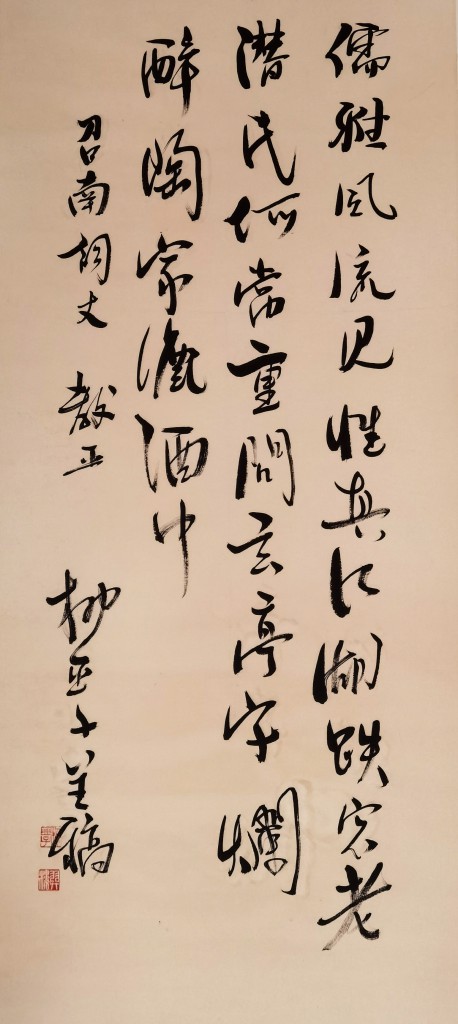 儒雅風流見性真江湖跌宕老
潛民何當重問玄亭字爛
醉陶家漉酒巾
召南詞丈 教正 柳亞子呈稿